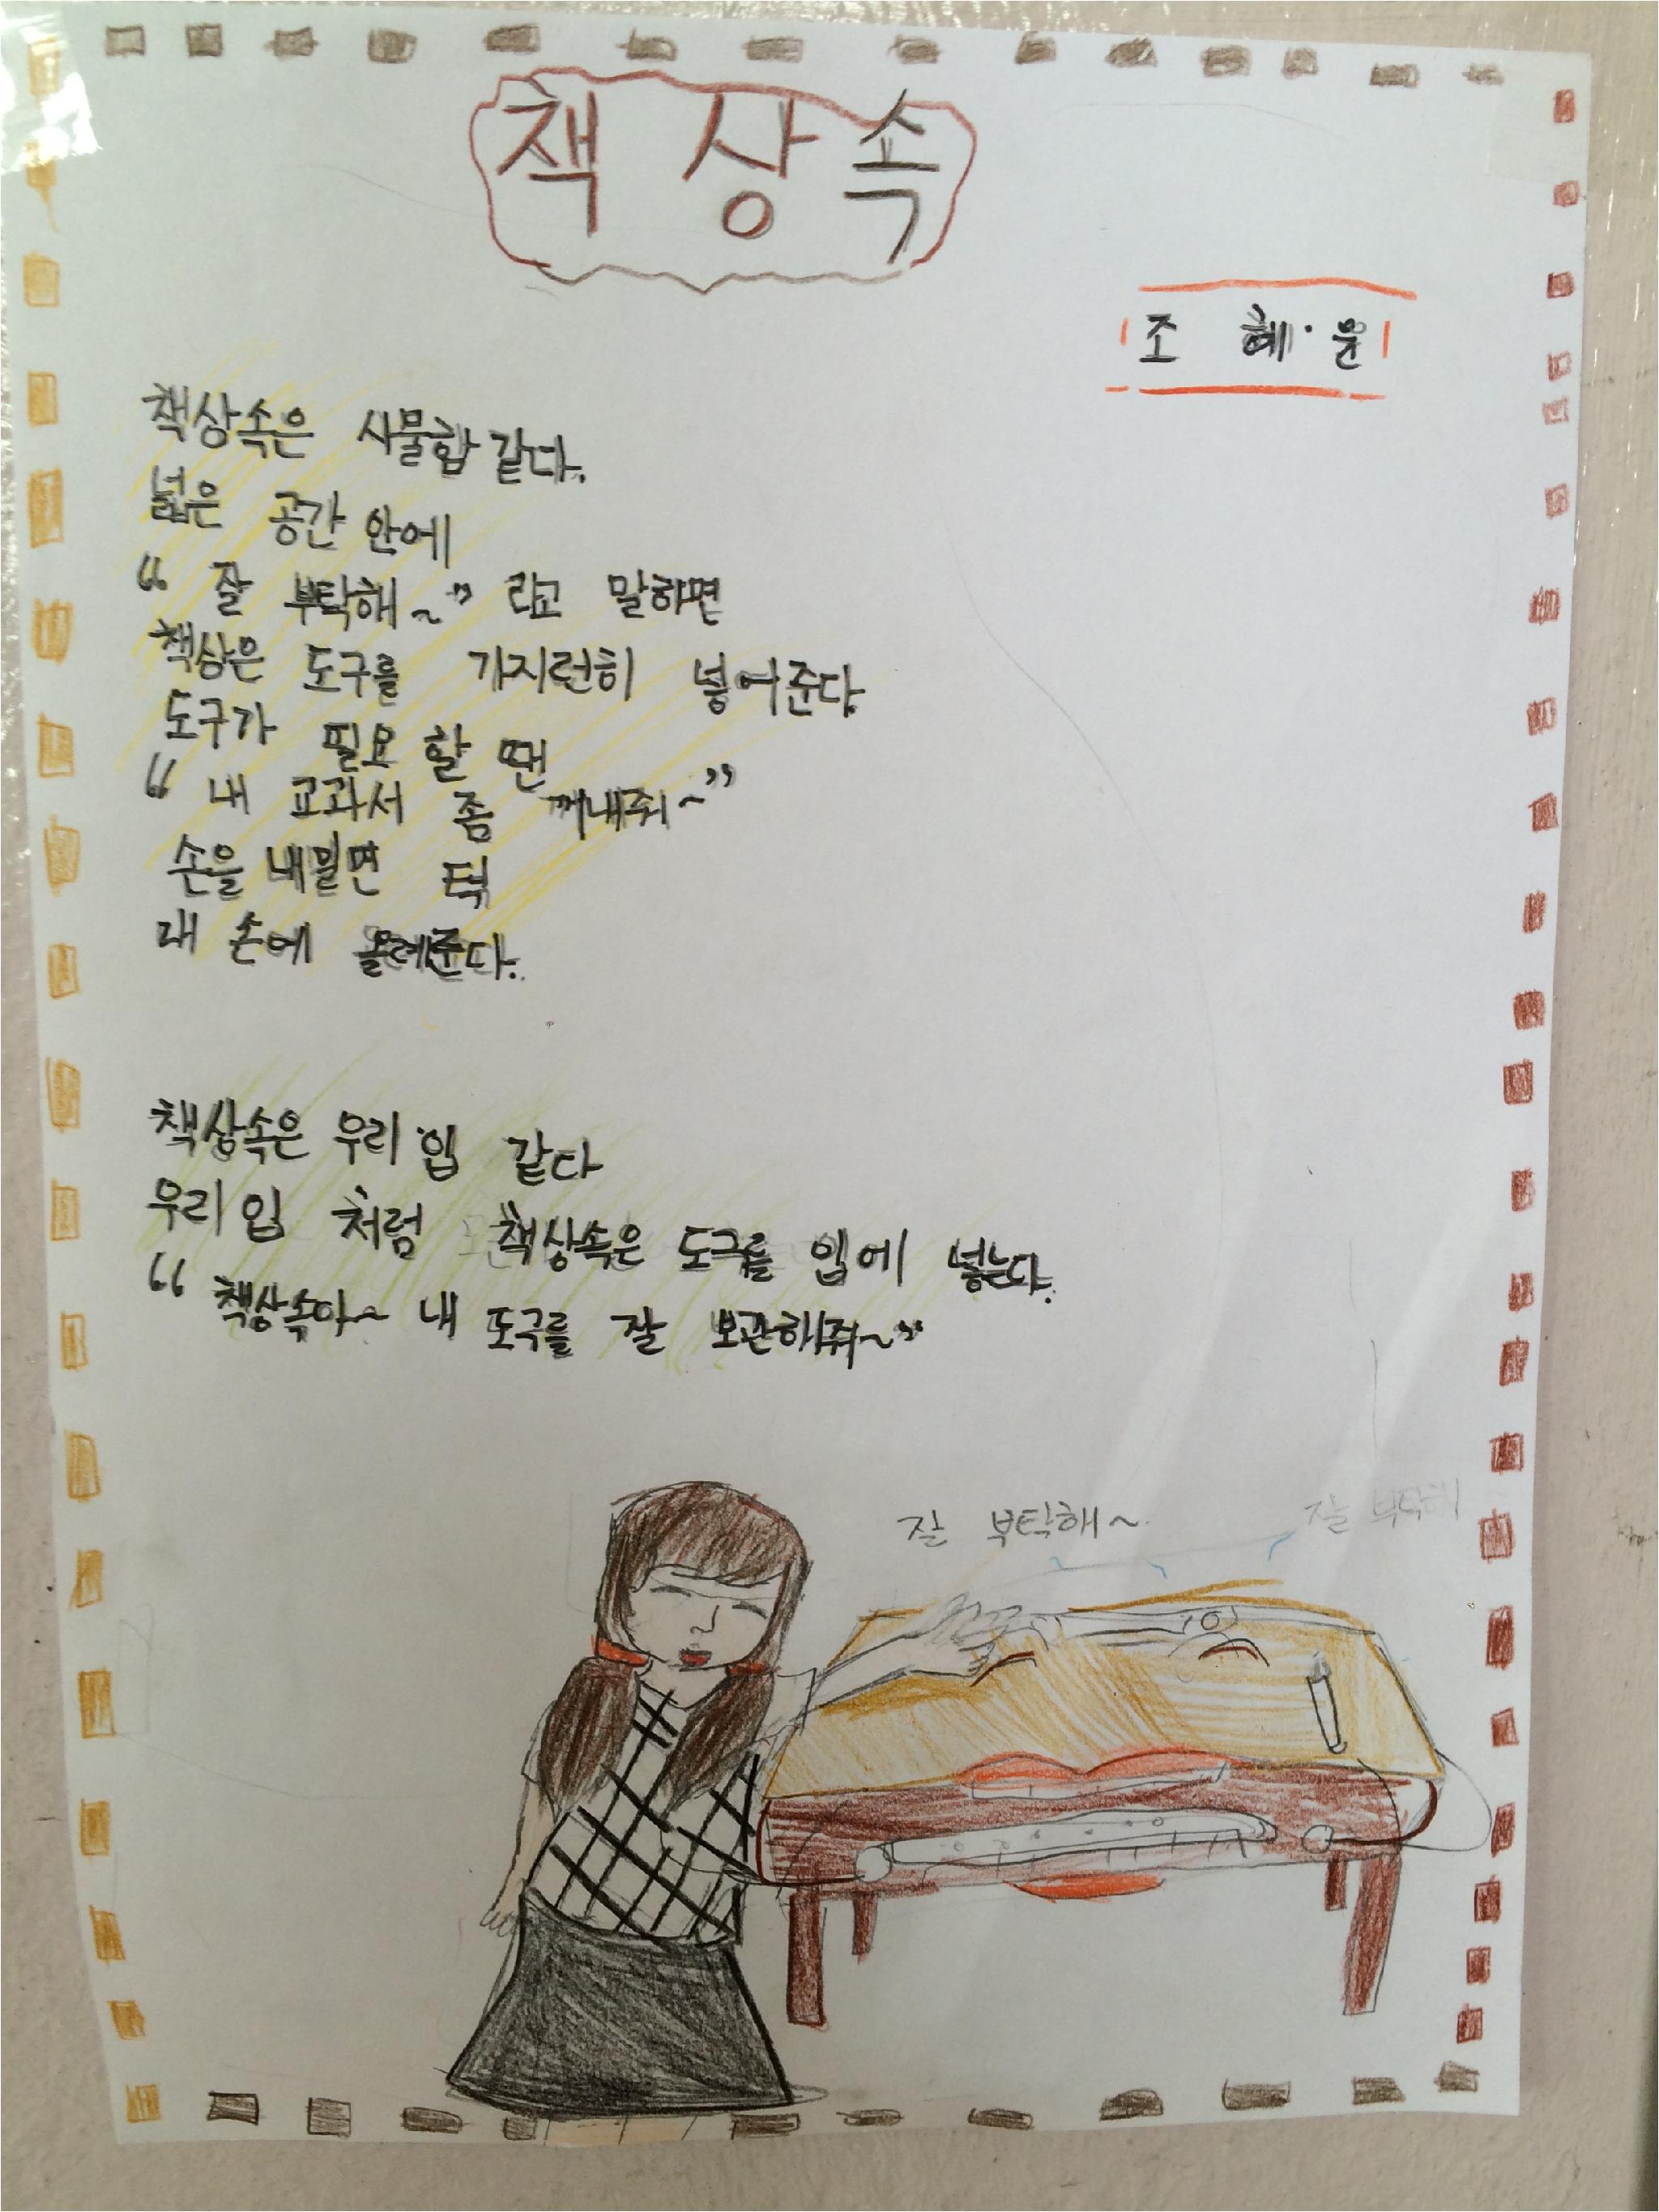 책상속
조혜윤
책상속은 사물함 같다.
넓은 공간 안에
“ 잘 부탁해~” 라고 말하면
책상은 도구를 가지런히 넣어준다.
도구가 필요 할 땐
“ 내 교과서 좀 꺼내줘~”
손을 내밀면 턱
내 손에 올려준다.
책상속은 우리 입 같다
우리 입 처럼 책상속은 도구를 입에 넣는다.
“ 책상속아~ 내 도구를 잘 보관해줘~”
잘 부탁해~
잘 부탁해